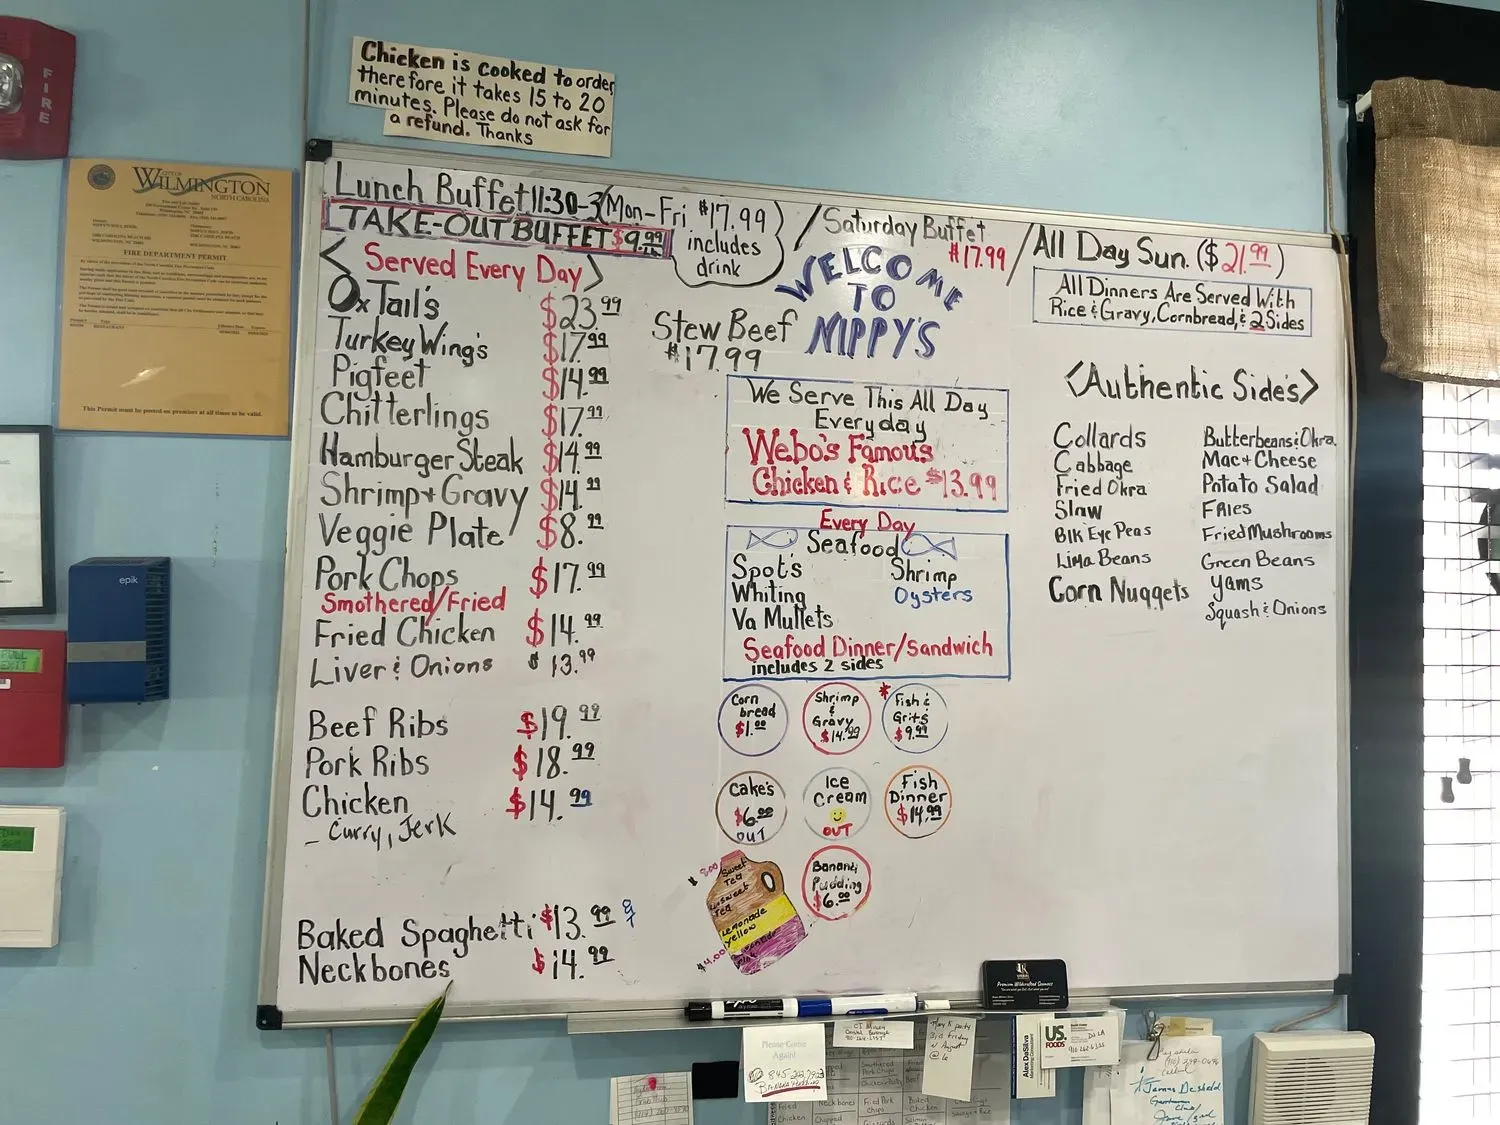 Chicken is cooked to order
therefore it takes 15 to 20
minutes. Please do not ask for
a refund. Thanks
FIRE
CITY OF
WILMINGTON
NORTH CAROLINA
FIRE DEPARTMENT PERMIT
This Permit must be posted on premises at all times to be valid.
epik
Lunch Buffet 11:30-3 (Mon-Fri $17.99)
includes
drink
TAKE-OUT BUFFET $9.99
/ Saturday Buffet
$17.99 /
All Day Sun. ($21.99)
<Served Every Day>
OxTail's $23.99
Turkey Wing's $17.99
Pigfeet $14.99
Chitterlings $17.99
Hamburger Steak $14.99
Shrimp + Gravy $14.99
Veggie Plate $8.99
Pork Chops $17.99
Smothered/Fried
Fried Chicken $14.99
Liver & Onions $13.99
Beef Ribs $19.99
Pork Ribs $18.99
Chicken $14.99
- Curry, Jerk
Baked Spaghetti $13.99
Neckbones $14.99
WELCOME
TO
NIPPY'S
Stew Beef
$17.99
We Serve This All Day
Everyday
Webo's Famous
Chicken & Rice $13.99
Every Day
Seafood
Spot's
Whiting
Va Mullets
Shrimp
Oysters
Seafood Dinner/Sandwich
includes 2 sides
Corn
bread
$1.00
Shrimp
&
Gravy
$14.99
* Fish &
Grits
$9.99
Cake's
$6.00
OUT
Ice
Cream
OUT
Fish
Dinner
$14.99
Sweet
Tea
Tea
Lemonade
Yellow
$4.00
Pudding
$6.00
All Dinners Are Served With
Rice & Gravy, Cornbread, & 2 Sides
<Authentic Side's>
Collards
Cabbage
Fried Okra
Slaw
Blk Eye Peas
Lima Beans
Corn Nuggets
Butterbeans & Okra
Mac + Cheese
Potato Salad
Fries
Fried Mushrooms
Green Beans
Yams
Squash & Onions
EXPO
Please Come
Again!
Alex DaSilva
US.
FOODS